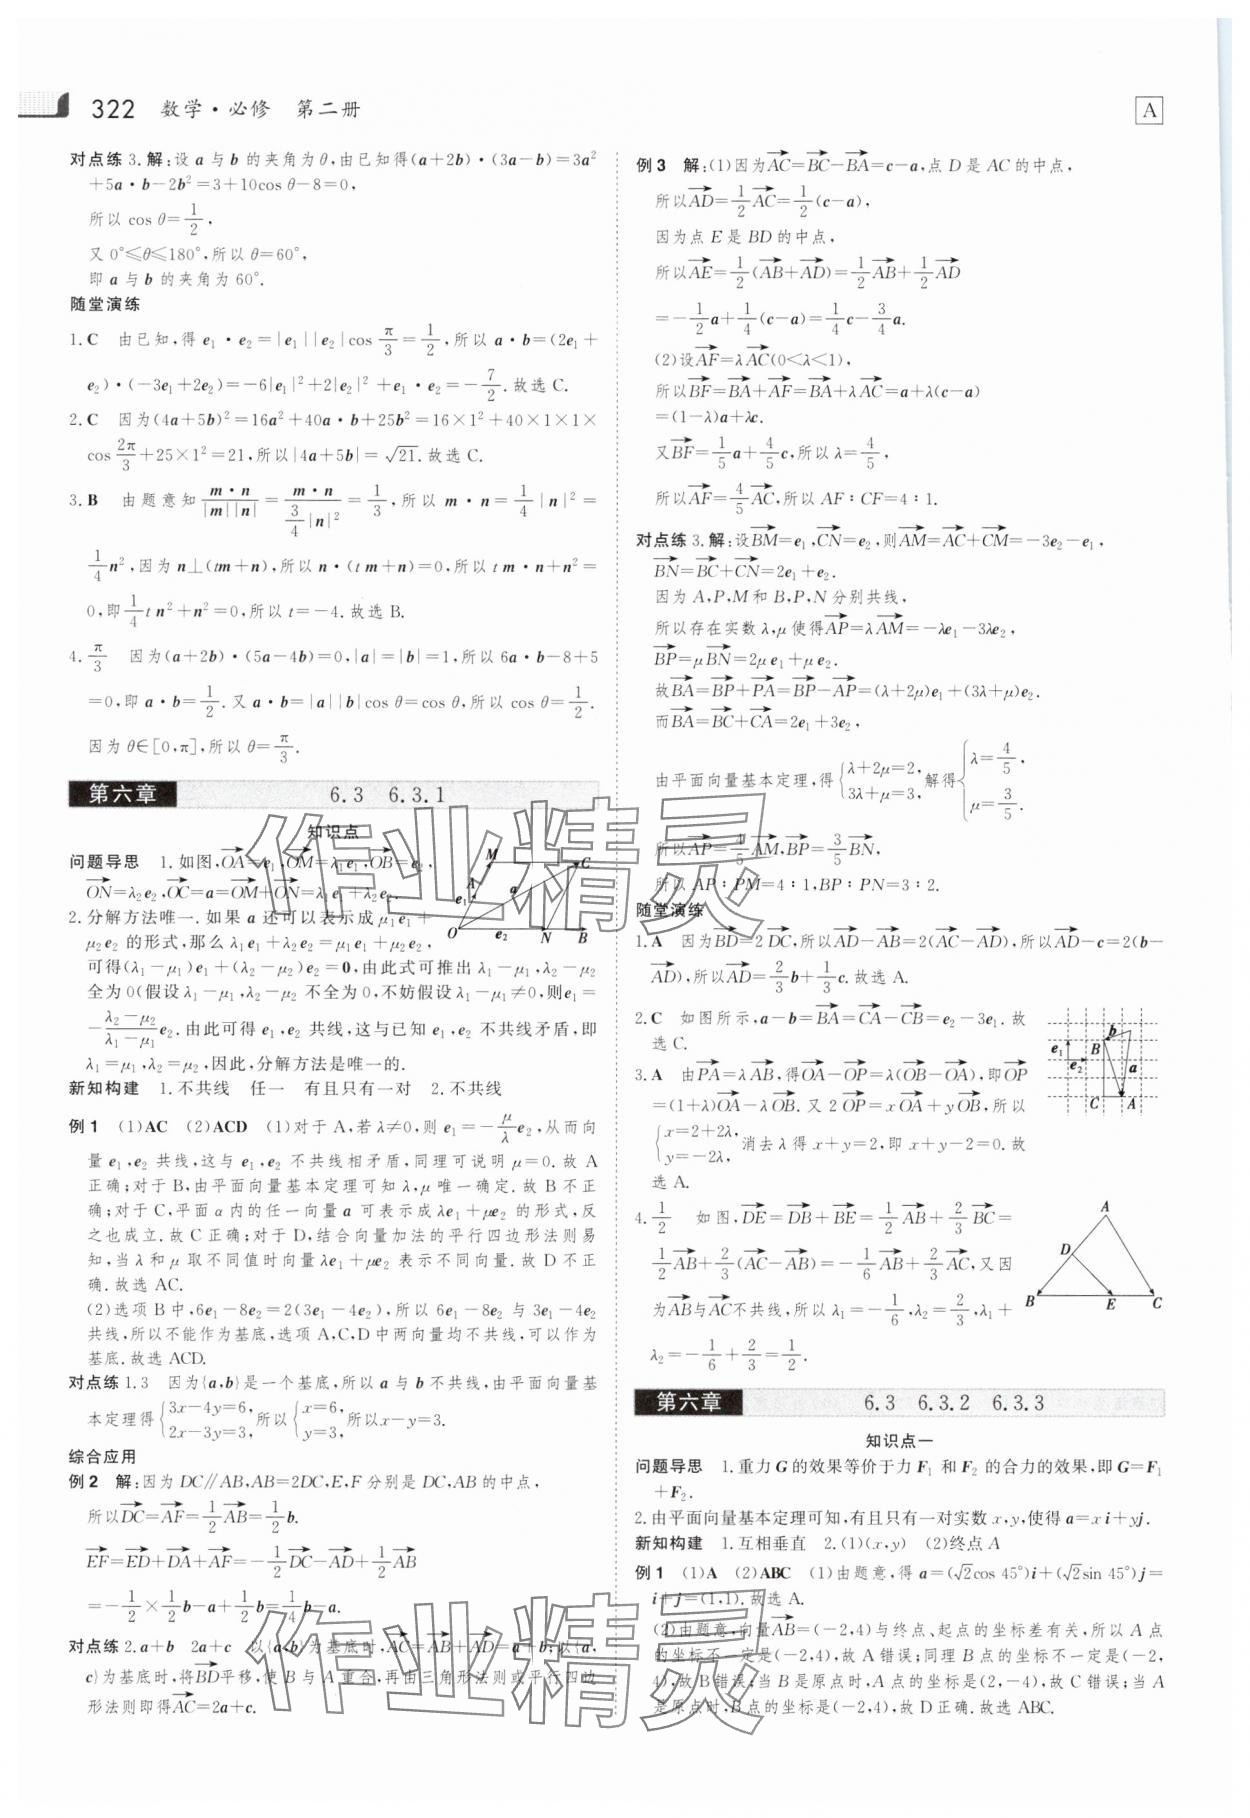 322 数学·必修 第二册
A
对点练 3.解:设 a 与 b 的夹角为θ,由已知得(a+2b)·(3a-b)=3a²
+5a·b-2b²=3+10cos θ-8=0,
所以 cos θ=1/2,
又 0°≤θ≤180°,所以 θ=60°,
即 a 与 b 的夹角为 60°.
随堂演练
1.C 由已知,得 e₁·e₂=|e₁||e₂|cos π/3=1/2,所以 a·b=(2e₁+
e₂)·(-3e₁+2e₂)=-6|e₁|²+2|e₂|²+e₁·e₂=-7/2.故选 C.
2.C 因为(4a+5b)²=16a²+40a·b+25b²=16×1²+40×1×1×
cos 2π/3+25×1²=21,所以|4a+5b|=√21.故选 C.
3.B 由题意知 m·n/|m||n|=m·n/(3/4|n|²)=1/3,所以 m·n=1/4|n|²=
1/4n²,因为 n⊥(tm+n),所以 n·(tm+n)=0,所以 tm·n+n²=
0,即1/4tn²+n²=0,所以 t=-4.故选 B.
4.π/3 因为(a+2b)·(5a-4b)=0,|a|=|b|=1,所以 6a·b-8+5
=0,即 a·b=1/2.又 a·b=|a||b|cos θ=cos θ,所以 cos θ=1/2.
因为 θ∈[0,π],所以 θ=π/3.
第六章 6.3 6.3.1
知识点
问题导思 1.如图,OA→=e₁,OM→=λ₁e₁,OB→=e₂,
ON→=λ₂e₂,OC→=a=OM→+ON→=λ₁e₁+λ₂e₂.
2.分解方法唯一.如果 a 还可以表示成 μ₁e₁+
μ₂e₂ 的形式,那么 λ₁e₁+λ₂e₂=μ₁e₁+μ₂e₂,
可得(λ₁-μ₁)e₁+(λ₂-μ₂)e₂=0,由此式可推出 λ₁-μ₁,λ₂-μ₂
全为 0(假设 λ₁-μ₁,λ₂-μ₂ 不全为 0,不妨假设 λ₁-μ₁≠0,则e₁=
-(λ₂-μ₂)/(λ₁-μ₁)e₂.由此可得 e₁,e₂ 共线,这与已知 e₁,e₂ 不共线矛盾,即
λ₁=μ₁,λ₂=μ₂,因此,分解方法是唯一的.
M
C
A
a
e₁
O
e₂
N
B
新知构建 1.不共线 任一 有且只有一对 2.不共线
例 1 (1)AC (2)ACD (1)对于 A,若 λ≠0,则 e₁=-μ/λe₂,从而向
量 e₁,e₂ 共线,这与 e₁,e₂ 不共线相矛盾,同理可说明 μ=0.故 A
正确;对于 B,由平面向量基本定理可知 λ,μ 唯一确定.故 B 不正
确;对于 C,平面 α内的任一向量 a 可表示成 λe₁+μe₂ 的形式,反
之也成立.故 C 正确;对于 D,结合向量加法的平行四边形法则易
知,当 λ 和 μ 取不同值时向量 λe₁+μe₂ 表示不同向量.故 D 不正
确.故选 AC.
(2)选项 B 中,6e₁-8e₂=2(3e₁-4e₂),所以 6e₁-8e₂ 与 3e₁-4e₂
共线,所以不能作为基底,选项 A,C,D 中两向量均不共线,可以作为
基底.故选 ACD.
对点练 1.3 因为{a,b}是一个基底,所以 a 与 b 不共线,由平面向量基
本定理得{3x-4y=6,2x-3y=3,所以{x=6,y=3,所以x-y=3.
综合应用
例 2 解:因为 DC∥AB,AB=2DC,E,F 分别是 DC,AB 的中点,
所以DC→=AF→=1/2AB→=1/2b.
EF→=ED→+DA→+AF→=-1/2DC→-AD→+1/2AB→
=-1/2×1/2b-a+1/2b=1/4b-a.
对点练 2.a+b 2a+c 以{a,b}为基底时,AC→=AB→+AD→=a+b;以{a,
c}为基底时,将BD→平移,使 B 与 A 重合,再由三角形法则或平行四边
形法则即得AC→=2a+c.
例 3 解:(1)因为AC→=BC→-BA→=c-a,点 D 是 AC 的中点,
所以AD→=1/2AC→=1/2(c-a),
因为点 E 是 BD 的中点,
所以AE→=1/2(AB→+AD→)=1/2AB→+1/2AD→
=-1/2a+1/4(c-a)=1/4c-3/4a.
(2)设AF→=λAC→(0<λ<1),
所以BF→=BA→+AF→=BA→+λAC→=a+λ(c-a)
=(1-λ)a+λc.
又BF→=1/5a+4/5c,所以 λ=4/5,
所以AF→=4/5AC→,所以 AF∶CF=4∶1.
对点练 3.解:设BM→=e₁,CN→=e₂,则AM→=AC→+CM→=-3e₂-e₁,
BN→=BC→+CN→=2e₁+e₂.
因为 A,P,M 和 B,P,N 分别共线,
所以存在实数 λ,μ 使得AP→=λAM→=-λe₁-3λe₂,
BP→=μBN→=2μe₁+μe₂.
故BA→=BP→+PA→=BP→-AP→=(λ+2μ)e₁+(3λ+μ)e₂.
而BA→=BC→+CA→=2e₁+3e₂,
由平面向量基本定理,得{λ+2μ=2,3λ+μ=3,解得{λ=4/5,μ=3/5.
所以AP→=4/5AM→,BP→=3/5BN→,
所以 AP∶PM=4∶1,BP∶PN=3∶2.
随堂演练
1.A 因为BD→=2DC→,所以AD→-AB→=2(AC→-AD→),所以AD→-c=2(b-
AD→),所以AD→=2/3b+1/3c.故选 A.
2.C 如图所示,a-b=BA→=CA→-CB→=e₂-3e₁.故
选 C.
3.A 由PA→=λAB→,得OA→-OP→=λ(OB→-OA→),即OP→
=(1+λ)OA→-λOB→.又 2OP→=xOA→+yOB→,所以
{x=2+2λ,y=-2λ,消去 λ 得 x+y=2,即 x+y-2=0.故
选 A.
b
B
e₁
e₂
a
C
A
4.1/2 如图,DE→=DB→+BE→=1/2AB→+2/3BC→=
1/2AB→+2/3(AC→-AB→)=-1/6AB→+2/3AC→,又因
为AB→与AC→不共线,所以 λ₁=-1/6,λ₂=2/3,λ₁+
λ₂=-1/6+2/3=1/2.
A
D
B
E
C
第六章 6.3 6.3.2 6.3.3
知识点一
问题导思 1.重力 G 的效果等价于力 F₁ 和 F₂ 的合力的效果,即 G=F₁
+F₂.
2.由平面向量基本定理可知,有且只有一对实数 x,y,使得 a=xi+yj.
新知构建 1.互相垂直 2.(1)(x,y) (2)终点 A
例 1 (1)A (2)ABC (1)由题意,得 a=(√2cos 45°)i+(√2sin 45°)j=
i+j=(1,1).故选 A.
(2)由题意,向量AB→=(-2,4)与终点、起点的坐标差有关,所以 A 点
的坐标不一定是(-2,4),故 A 错误;同理 B 点的坐标不一定是(-2,
4),故 B错误;当 B 是原点时,A 点的坐标是(2,-4),故 C 错误;当 A
是原点时,B 点的坐标是(-2,4),故 D 正确.故选 ABC.
作业精灵
作业精灵